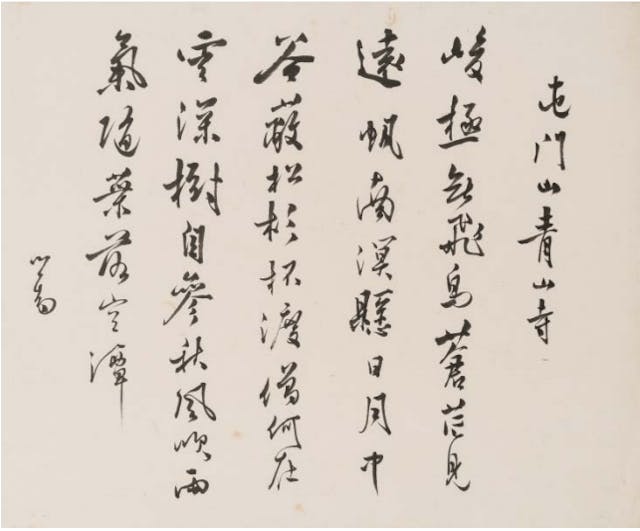 屯門山青山寺
峻極無飛鳥蒼茫見
遠帆南溟懸日月中
谷蔽松杉杯渡僧何在
雲深樹自參秋風吹雨
氣隨葉落空潭
心畬